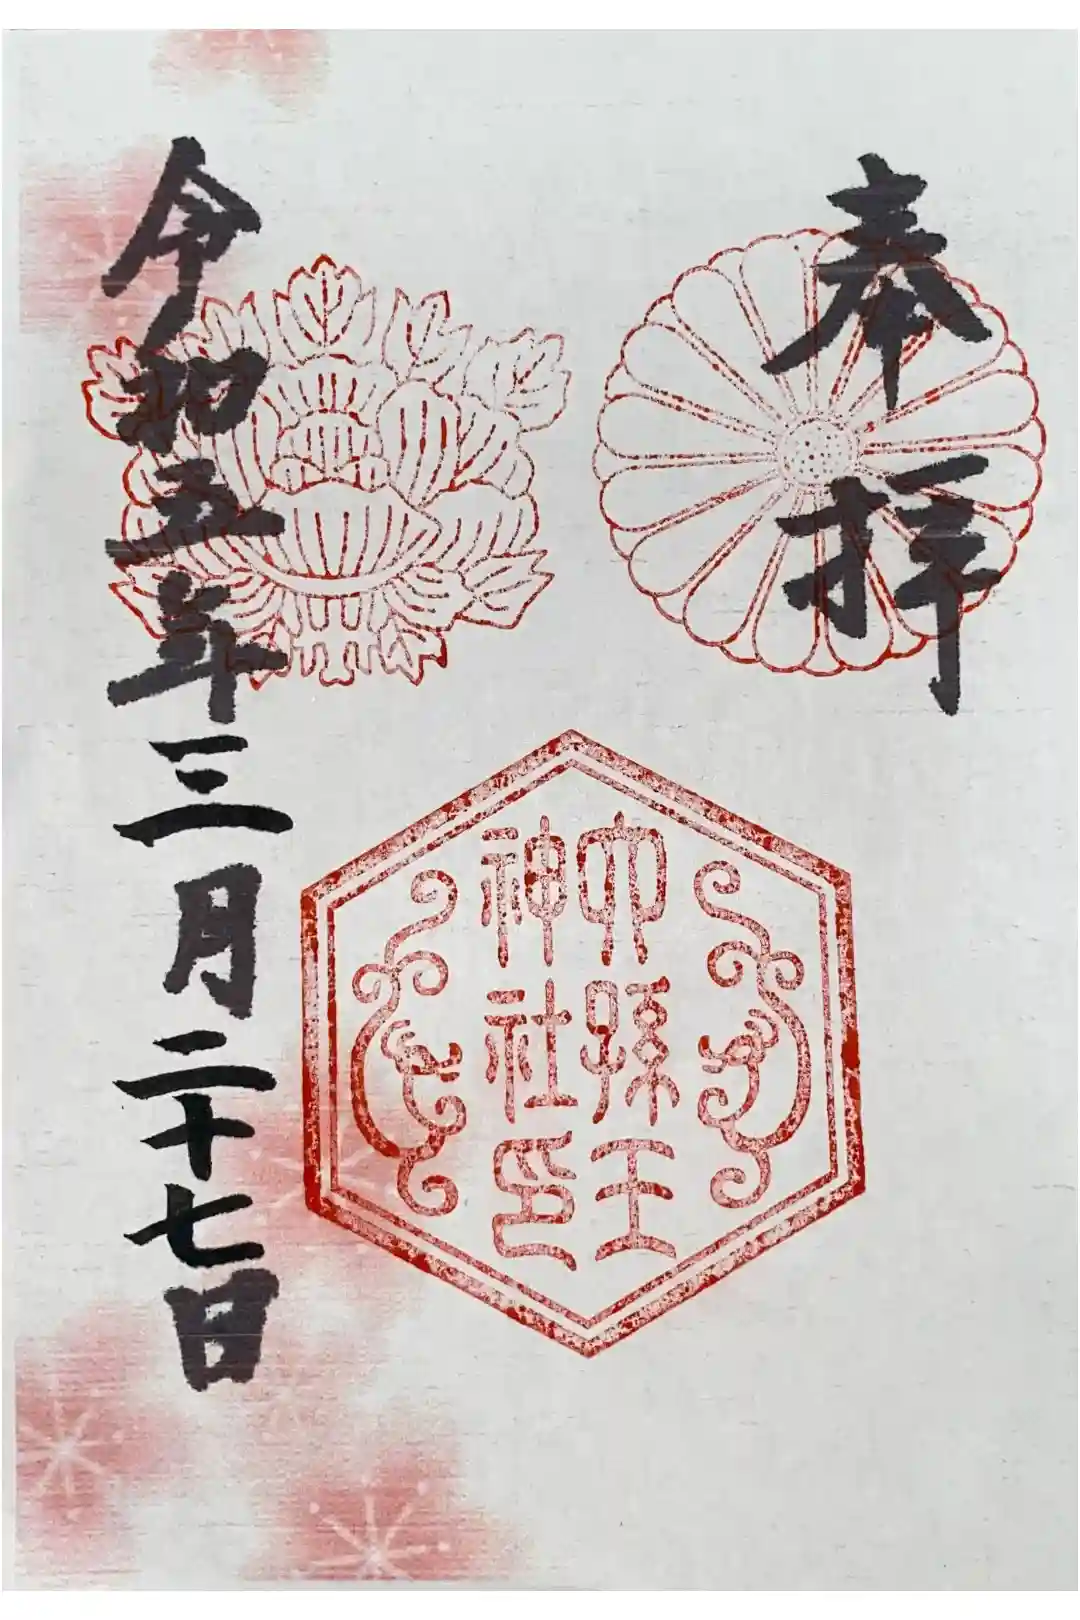 奉拝
六孫王
神社印
令和五年三月二十七日